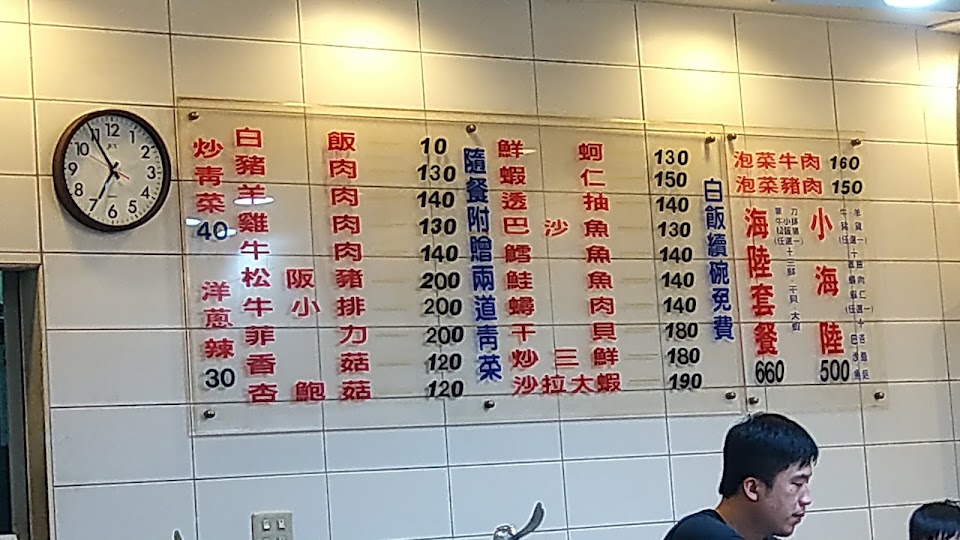 炒青菜 40
洋蔥辣 30
白飯 10
豬肉 130
羊肉 140
雞肉 130
牛肉 140
松阪豬 200
牛小排 200
菲力 200
香菇 120
杏鮑菇 120
隨餐附贈兩道青菜
鮮蚵 130
蝦仁 150
透抽 140
巴沙魚 130
鱈魚 140
鮭魚 140
鱘肉 140
干貝 180
炒三鮮 180
沙拉大蝦 190
白飯續碗免費
泡菜牛肉 160
泡菜豬肉 150
海陸套餐 660
小海陸 500
12 1 2 3 4 5 6 7 8 9 10 11